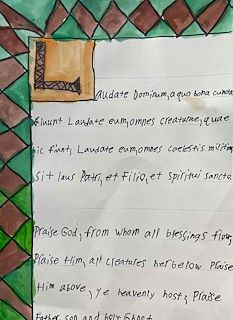 Laudate Dominum, a quo bona cuncta
fluunt Laudate eum, omnes creaturae, quae
hic fiunt; Laudate eum, omnes coelestis militiae
sit laus Patri, et Filio, et spiritui sancto.
Praise God, from whom all blessings flow;
Praise Him, all creatures her below Praise
Him above, ye heavenly host; Praise
Father, son and holy Ghost